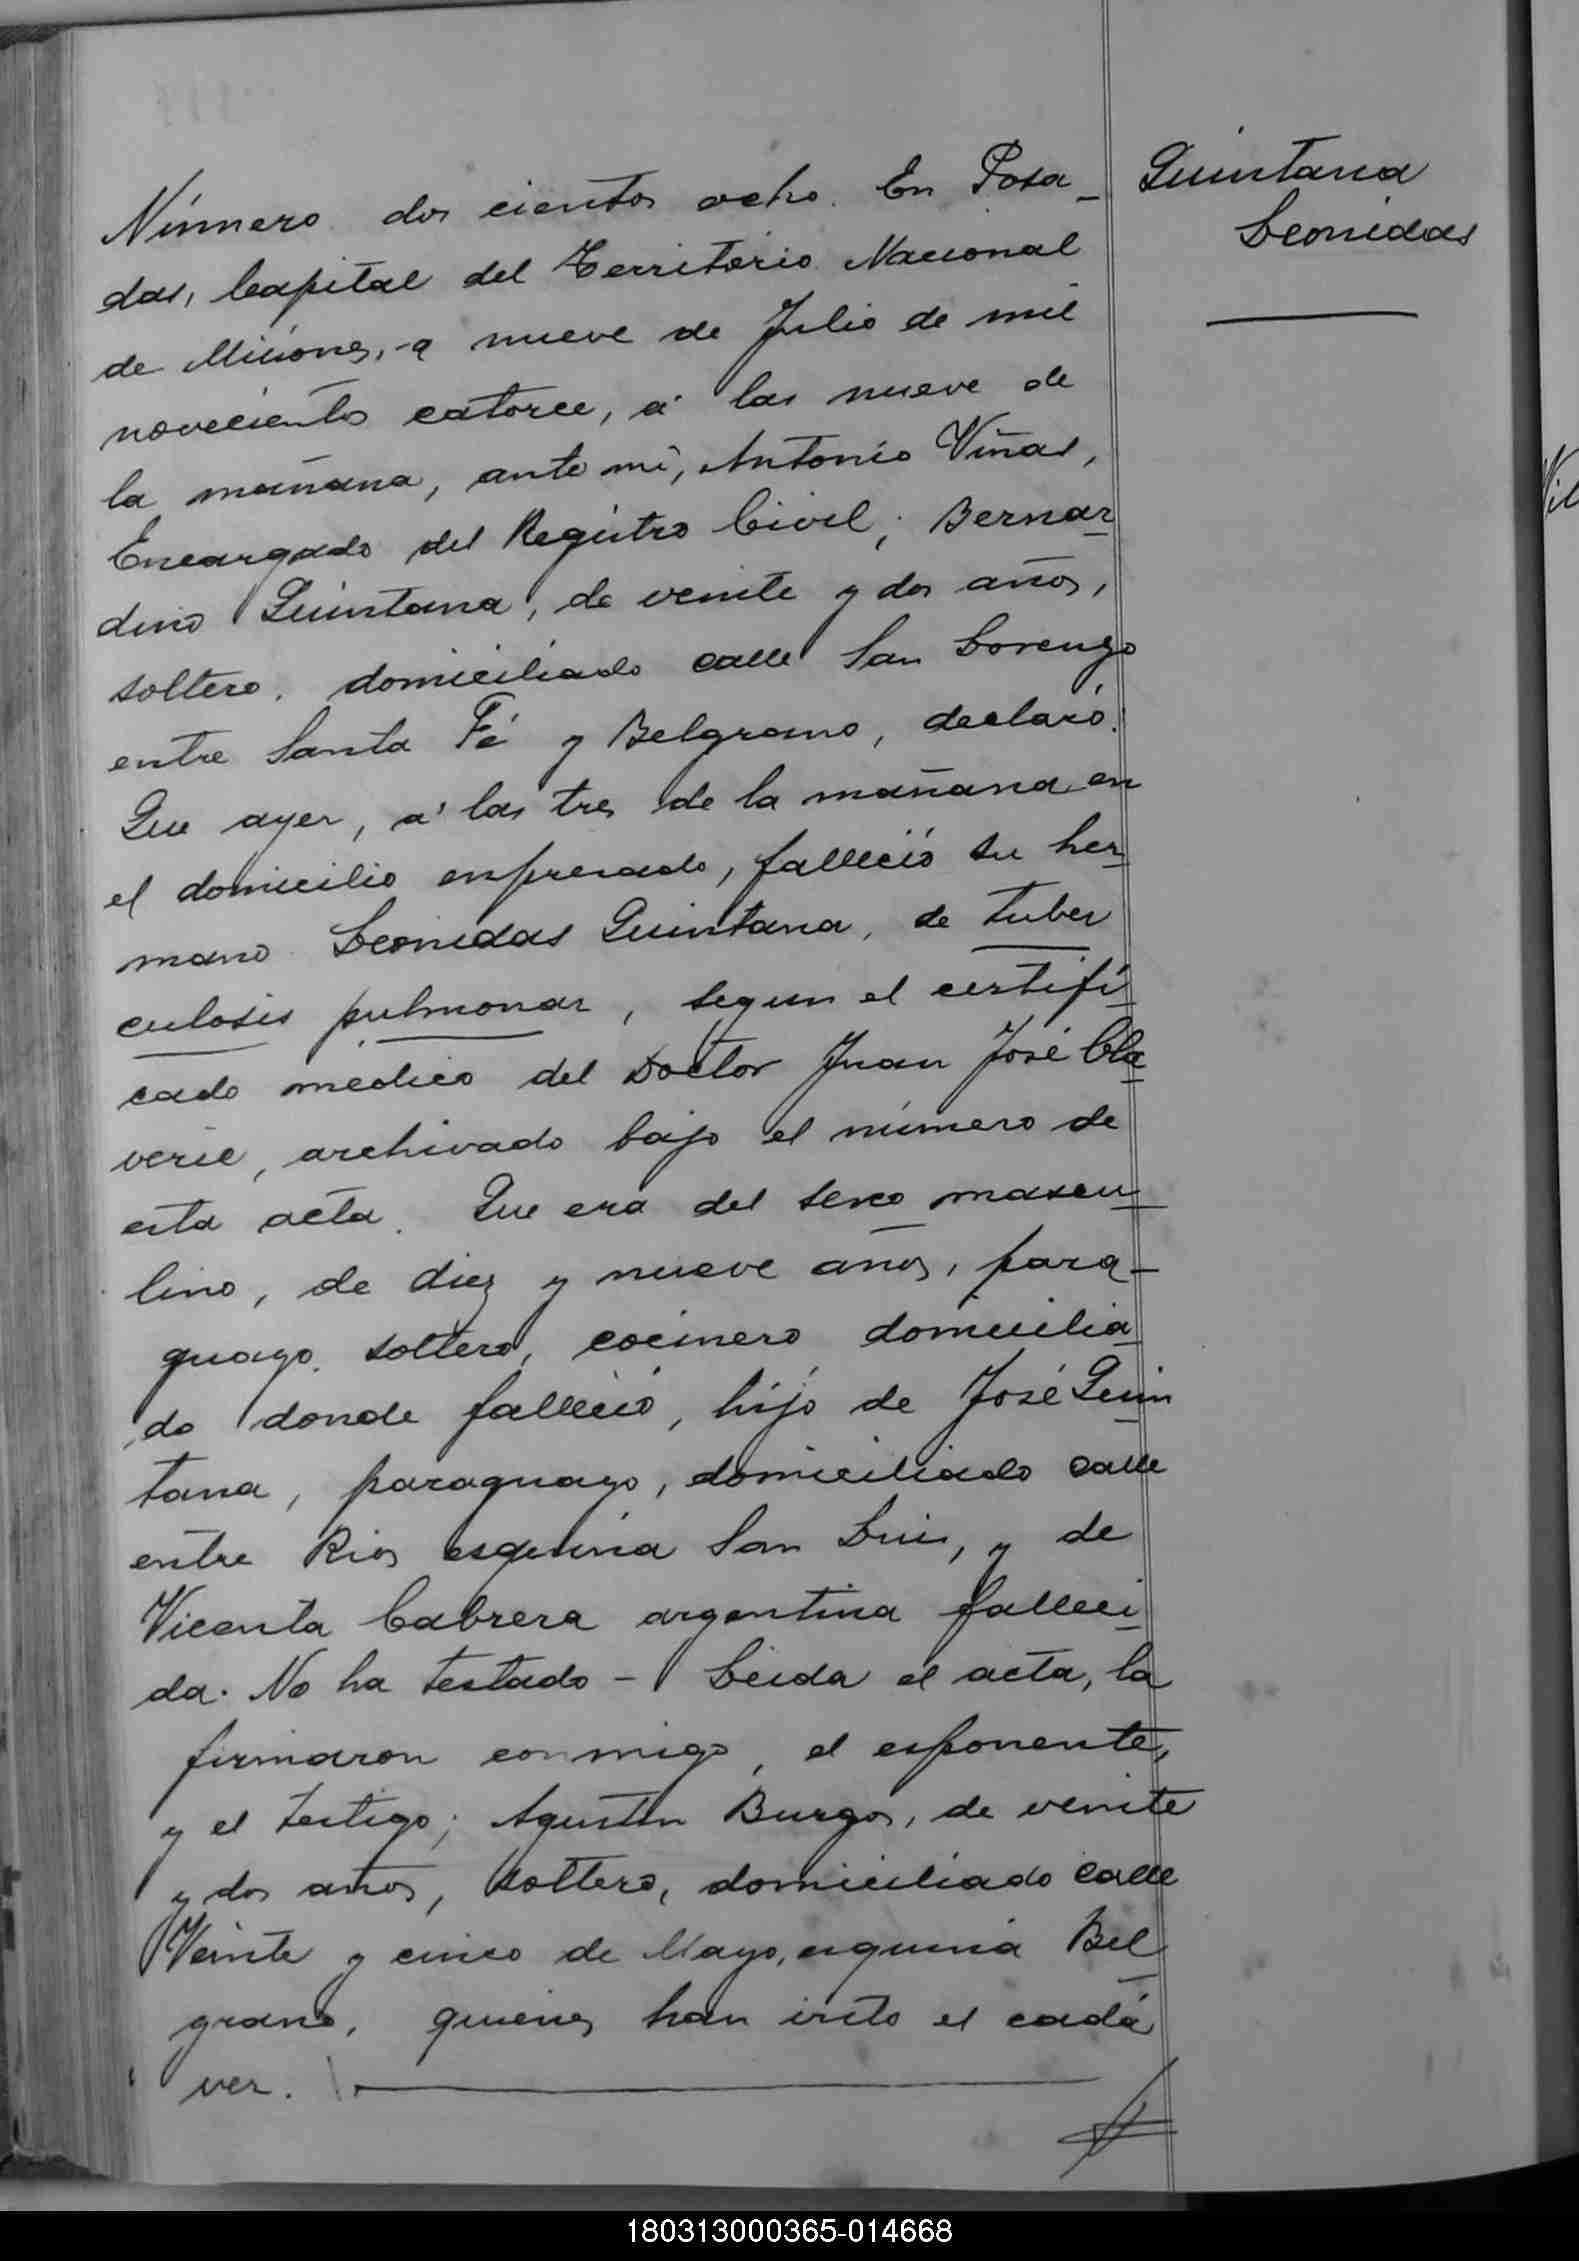 Quintana
Leonidas
Número dos cientos ocho. En Posa-
das, Capital del Territorio Nacional
de Misiones, a nueve de Julio de mil
novecientos catorce, á las nueve de
la mañana, ante mi, Antonio Viñas,
Encargado del Registro Civil; Bernar
dino Quintana, de veinte y dos años,
soltero, domiciliado calle San Lorenzo
entre Santa Fé y Belgrano, declaró:
Que ayer, á las tres de la mañana en
el domicilio expresado, falleció su her
mano Leonidas Quintana, de tuber
culosis pulmonar, segun el certifi
cado médico del Doctor Juan José Cla
verie, archivado bajo el número de
esta acta. Que era del sexo mascu
lino, de diez y nueve años, para-
guayo, soltero, cocinero domicilia
do donde falleció, hijo de José Quin
tana, paraguayo, domiciliado calle
entre Rios esquina San Luis, y de
Vicenta Cabrera argentina falleci
da. No ha testado - Leida el acta, la
firmaron conmigo, el esponente,
y el testigo; Agustin Burgos, de veinte
y dos años, soltero, domiciliado calle
Veinte y cinco de Mayo, esquina Bel
grano, quienes han visto el cadá
ver.
180313000365-014668